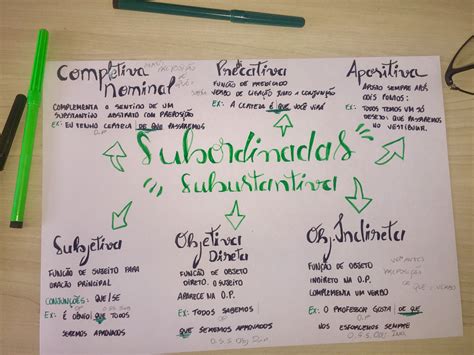 Completiva
Nominal
COMPLEMENTA O SENTIDO DE UM
SUBSTANTIVO ABSTRATO COM PREPOSIÇÃO
EX: EU TENHO CERTEZA DE QUE PASSAREMOS
O.P
Predicativa
FUNÇÃO DE PREDICADO
VERBO DE LIGAÇÃO + A CONJUNÇÃO
EX: A CERTEZA É QUE VOCÊ VIRÁ
Apositiva
APOSTO SEMPRE APÓS
DOIS PONTOS:
EX: TODOS TEMOS UM SÓ
DESEJO: QUE PASSAREMOS
NO VESTIBULAR.
Subordinadas
Subustantiva
Subjetiva
FUNÇÃO DE SUJEITO PARA
ORAÇÃO PRINCIPAL
CONJUNÇÕES: QUE/SE
EX: É ÓBVIO QUE TODOS
SEREMOS APROVADOS
Objetiva
Direta
FUNÇÃO DE OBJETO
DIRETO. O SUJEITO
APARECE NA O.P.
EX: TODOS SABEMOS
QUE SEREMOS APROVADOS
Obj. Indireta
FUNÇÃO DE OBJETO
INDIRETO NA O.P.
COMPLEMENTA UM VERBO
PREPOSIÇÃO
EX: O PROFESSOR GOSTA DE QUE
NOS ESFORCEMOS SEMPRE